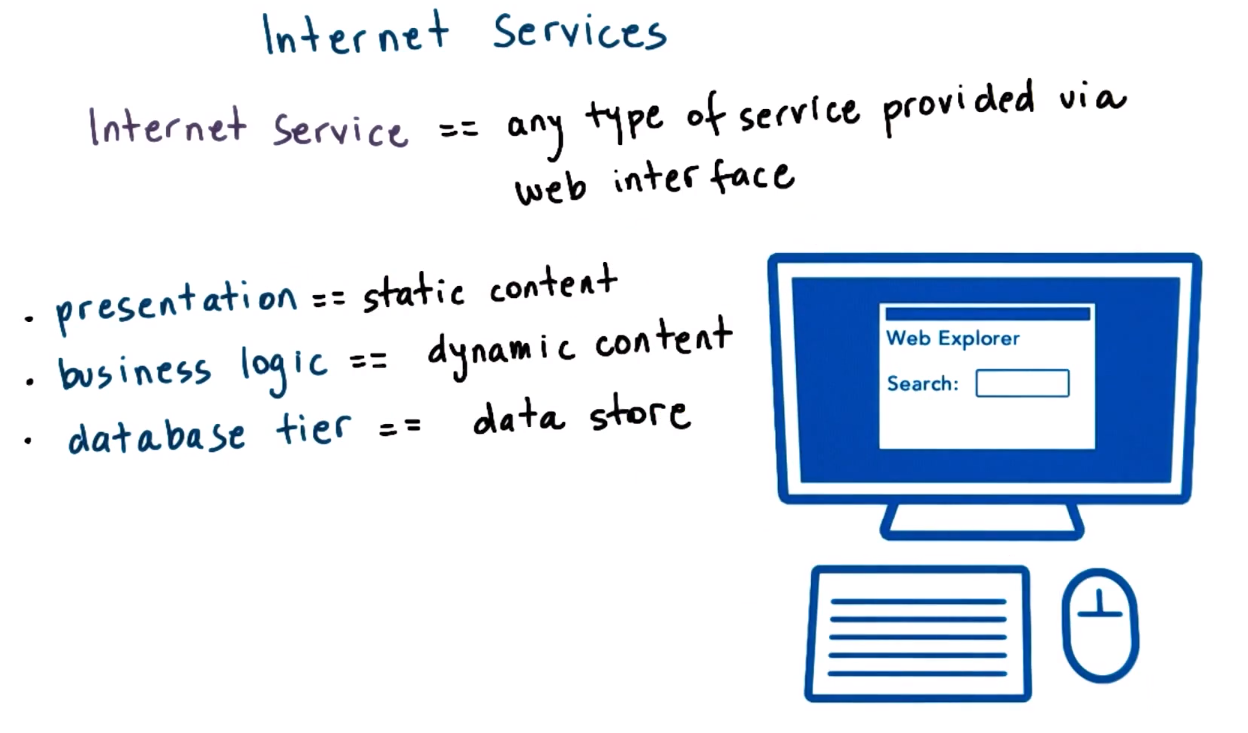 Internet Services
Internet Service == any type of service provided via
web interface
. presentation == static content
. business logic == dynamic content
. database tier == data store
Web Explorer
Search: